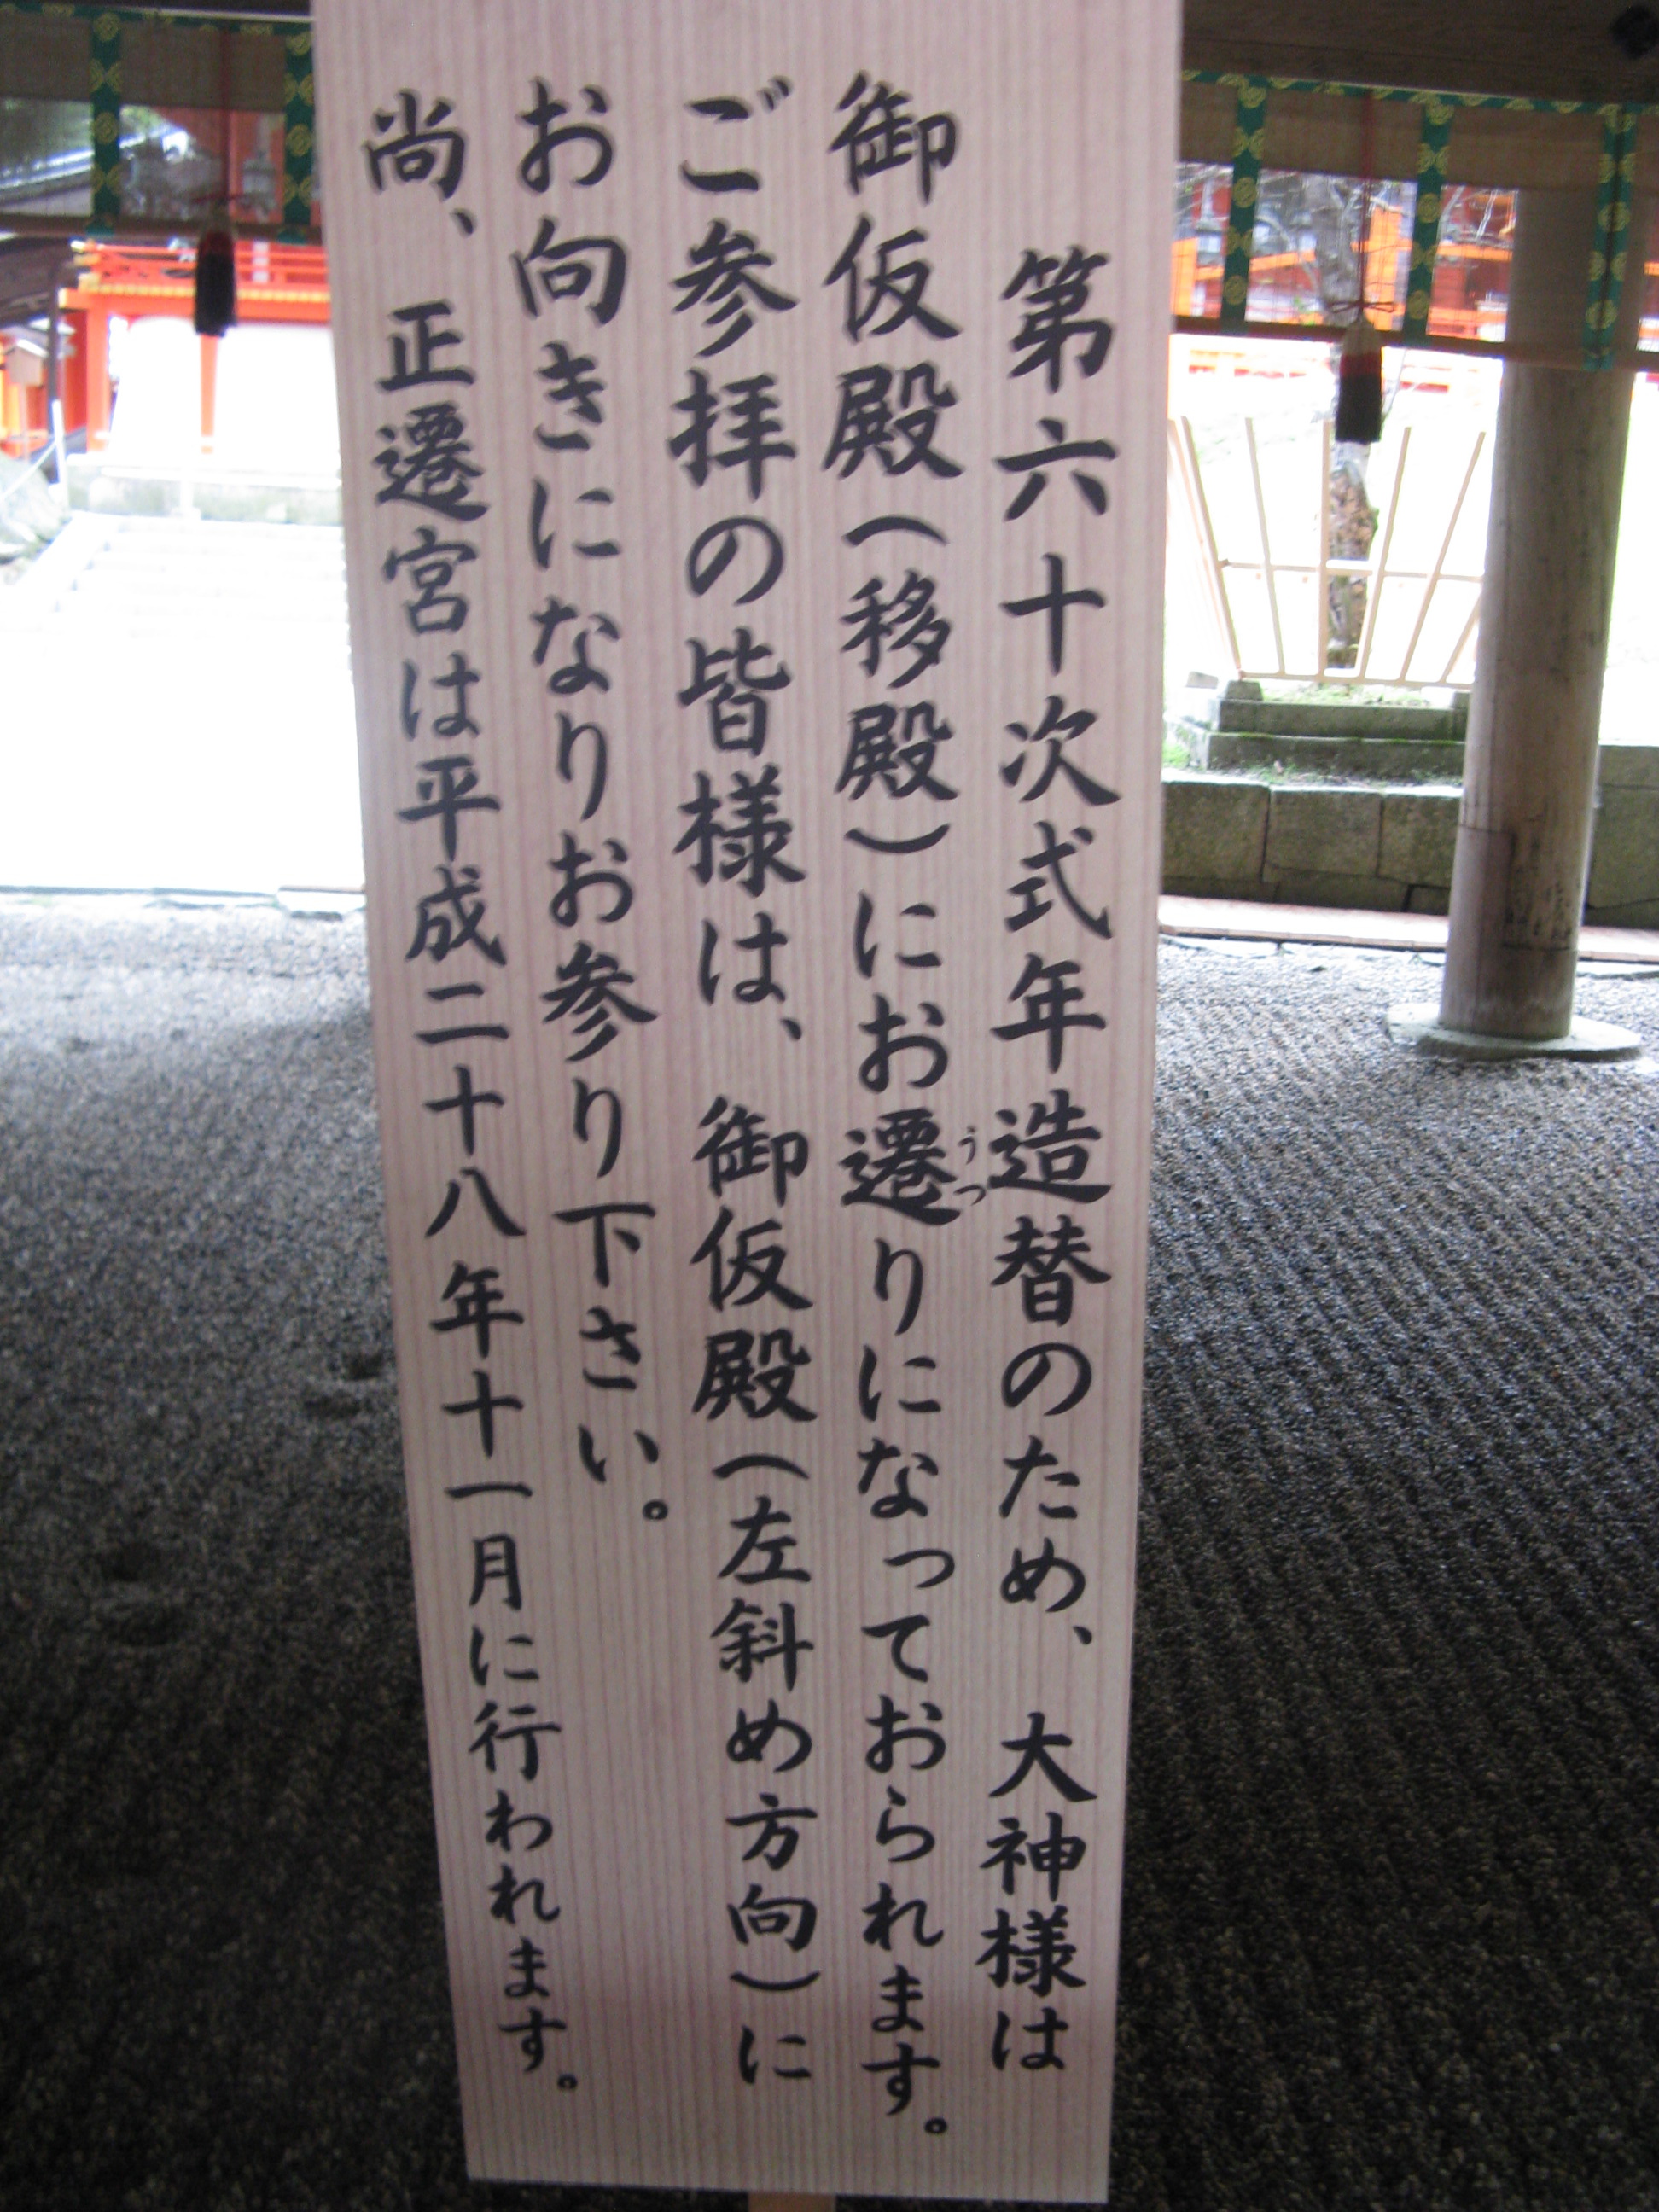 第六十次式年造替のため、大神様は
御仮殿(移殿)にお遷りになっておられます。
うつ
ご参拝の皆様は、御仮殿(左斜め方向)に
お向きになりお参り下さい。
尚、正遷宮は平成二十八年十一月に行われます。